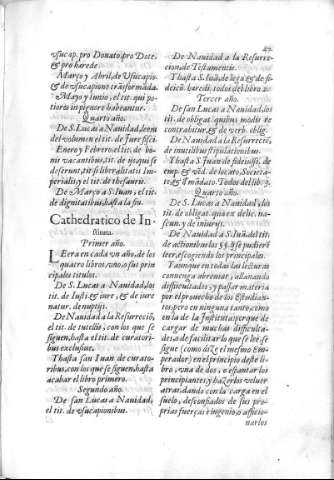 47
vsucap. pro Donato, pro Dote,
& pro hærede.
Março y Abril, de Vsucapio.
& de vsucapione trãsformada.
Mayo y Iunio, el tit. qui po-
tiores in pignore habeantur.
Quarto año.
De S. Lucas a Navidad, leerà
del volumen el tit. de Iure fisci.
Enero y Febrero, el tit. de bo-
nis vacantibus, tit. de ijs qui se
deferunt, tit. si liberalitatis Im-
perialis, y el tit. de thesauris.
De Março a S. Iuan, el tit.
de dignitatibus, hasta la fin.
Cathedratico de In-
stituta.
Primer año.
LEera en cada vn año, de los
quatro libros, vno, o sus prin
cipales titulos.
De S. Lucas a Navidad, los
tit. de Iusti. & iure, & de iure
natur. de nuptijs.
De Navidad a la Resurreciõ,
el tit. de tutelis, con los que se
siguen, hasta el tit. de curatori-
bus exclusiue.
Y hasta san Iuan de curato-
ribus, con los que se siguen, hasta
acabar el libro primero.
Segundo año.
De san Lucas a Navidad,
el tit. de vsucapionibus.
De Navidad a la Resurre-
ction, de Testamentis.
Y hasta S. Iuã, de lega. & de fi-
deicõ. hæredi. todos del libro 2.
Tercer año.
De san Lucas a Navidad, los
tit. de obligat. quibus modis re
contrahitur, & de verb. oblig.
De Navidad a la Resurreciõ,
de inutilibus stipulationibus.
Y hasta S. Iuan de fideiussi. de
emp. & vẽd. de locato, Societa-
te & mãdato. Todos del lib. 3.
Quarto año.
De S. Lucas a Navidad, los
tit. de obligat. quæ ex delic. nas-
cun. y de iniurijs.
De Navidad a S. Iuã el tit.
de actionibus los §§. q̃ se pudierẽ
leer, escogiendo los principales.
Y aunque en todas las lecturas
convenga abreniar, allanando
difficultades, y passar materia
por el prouecho de los Estudian-
tes, pero en ninguna tanto como
en la de la Instituta: porque de
cargar de muchas difficulta-
des, a de facilitar lo que se lee se
sigue (como dize el mesmo Em-
perador) en el principio deste li-
bro, vna de dos, o espantar los
principiantes, y hazerlos voluer
atras, dando con la carga en el
suelo, desconfiados de sus pro-
prias fuerças e ingenio, o afficio-
narlos